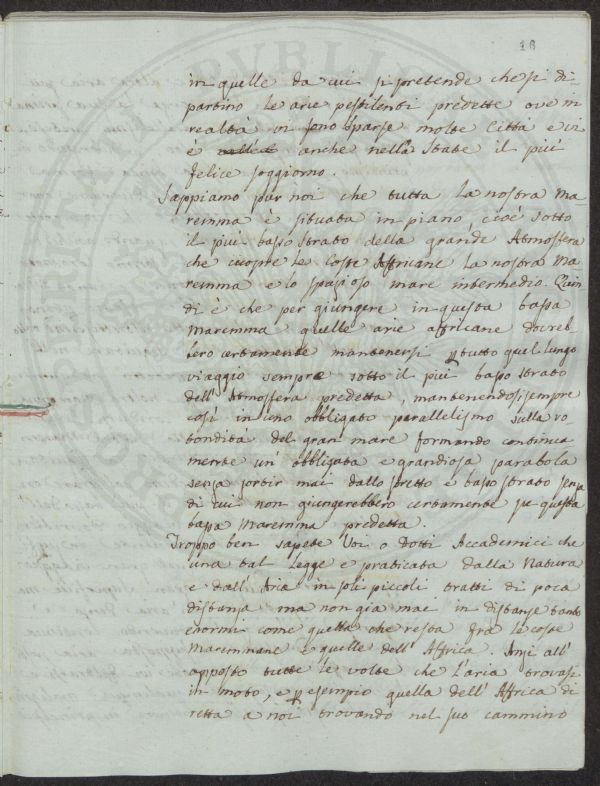 18
in quelle da cui si pretende che si di-
partino le arie pestilenti predette ove in
realtà vi sono sparse molte Città e vi
è anche nella State il più
felice soggiorno.
Sappiamo pur noi che tutta la nostra Ma-
remma è situata in piano, cioè sotto
il più basso strato della grande Atmosfera
che cuopre le Coste Affricane la nostra Ma
remma e lo spazioso mare intermedio. Quin
di è che per giungere in questa bassa
Maremma quelle arie affricane dovreb
bero certamente mantenersi p tutto quel lungo
viaggio sempre sotto il più basso strato
dell' Atmosfera predetta, mantenendosi sempre
così in uno obbligato parallelismo sulla ro-
tondità del gran mare formando continua
mente un' obbligata e grandiosa parabola
senza sortir mai dallo stretto e basso strato senza
di cui non giungerebbero certamente in questa
bassa Maremma predetta.
Troppo ben sapete Voi o Dotti Accademici che
una tal Legge e praticata dalla Natura
e dall' Aria in soli piccoli tratti di poca
distanza ma non già mai in distanze tanto
enormi come quella che resta fra le coste
Maremmane e quelle dell' Affrica. Anzi all'
opposto tutte le volte che l'aria trovasi
in moto, e p esempio quella dell' Affrica di
retta a noi trovando nel suo cammino